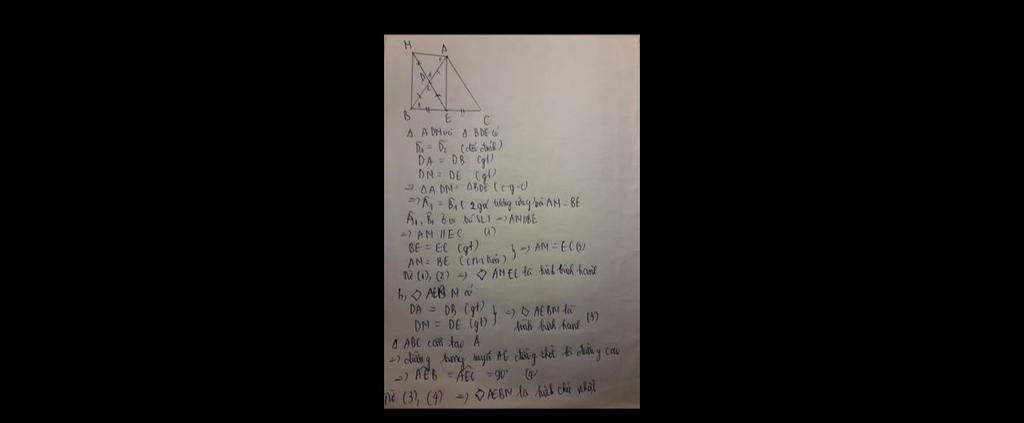 M A
D
B E C
Δ ADM và Δ BDE có
D̂1 = D̂2 (đối đỉnh)
DA = DB (gt)
DM = DE (gt)
=> ΔADM = ΔBDE (c-g-c)
=> Â1 = B̂1 ( 2 góc tương ứng và AM = BE
Â1, B̂1 ở vị trí SLT => AM//BE
=> AM // EC (1)
BE = EC (gt)
AM = BE (cm trên) } => AM = EC (2)
Từ (1), (2) => ◇ AMEC là hình bình hành
b, ◇ AEBM có
DA = DB (gt)
DM = DE (gt) } => ◇ AEBM là hình bình hành (3)
Δ ABC cân tại A
=> đường trung tuyến AE đồng thời là đường cao
=> AÊB = AÊC = 90° (4)
Từ (3), (4) => ◇ AEBM là hình chữ nhật